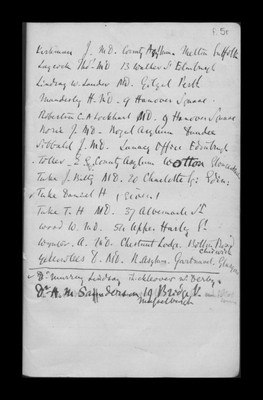 f. 5r
Kirkman J. MD. County Asylum Melton Suffolk
Laycock Thos MD 13 Walker St Edinburgh
Lindsay W. Lauder MD. Gilgal Perth
Manderly H. MD. 9 Hanover Square
Robertson C. A Lockhart MD. 9 Hanover Square
Rorie J. MD. Royal Asylum Dundee
Sibbald J. MD. Lunacy Office Edinburgh
Toller E. County Asylum Wotton Gloucester
Tuke J. Batty MD. 20 Charlotte Sq: Edin:
Tuke Daniel H
Tuke T. H MD. 37 Albemarle St
Wood W. MD. 54 Upper Harley St.
Wynter A. MD. Chestnut Lodge. Bolton Road
Chiswick
Yellowlees D. MD. R. Asylum. Gartnavel, Glasgow
Dr Murray Lindsay Mickleover nr Derby.
Dr. A. M 19 Bridge St
Musselburgh